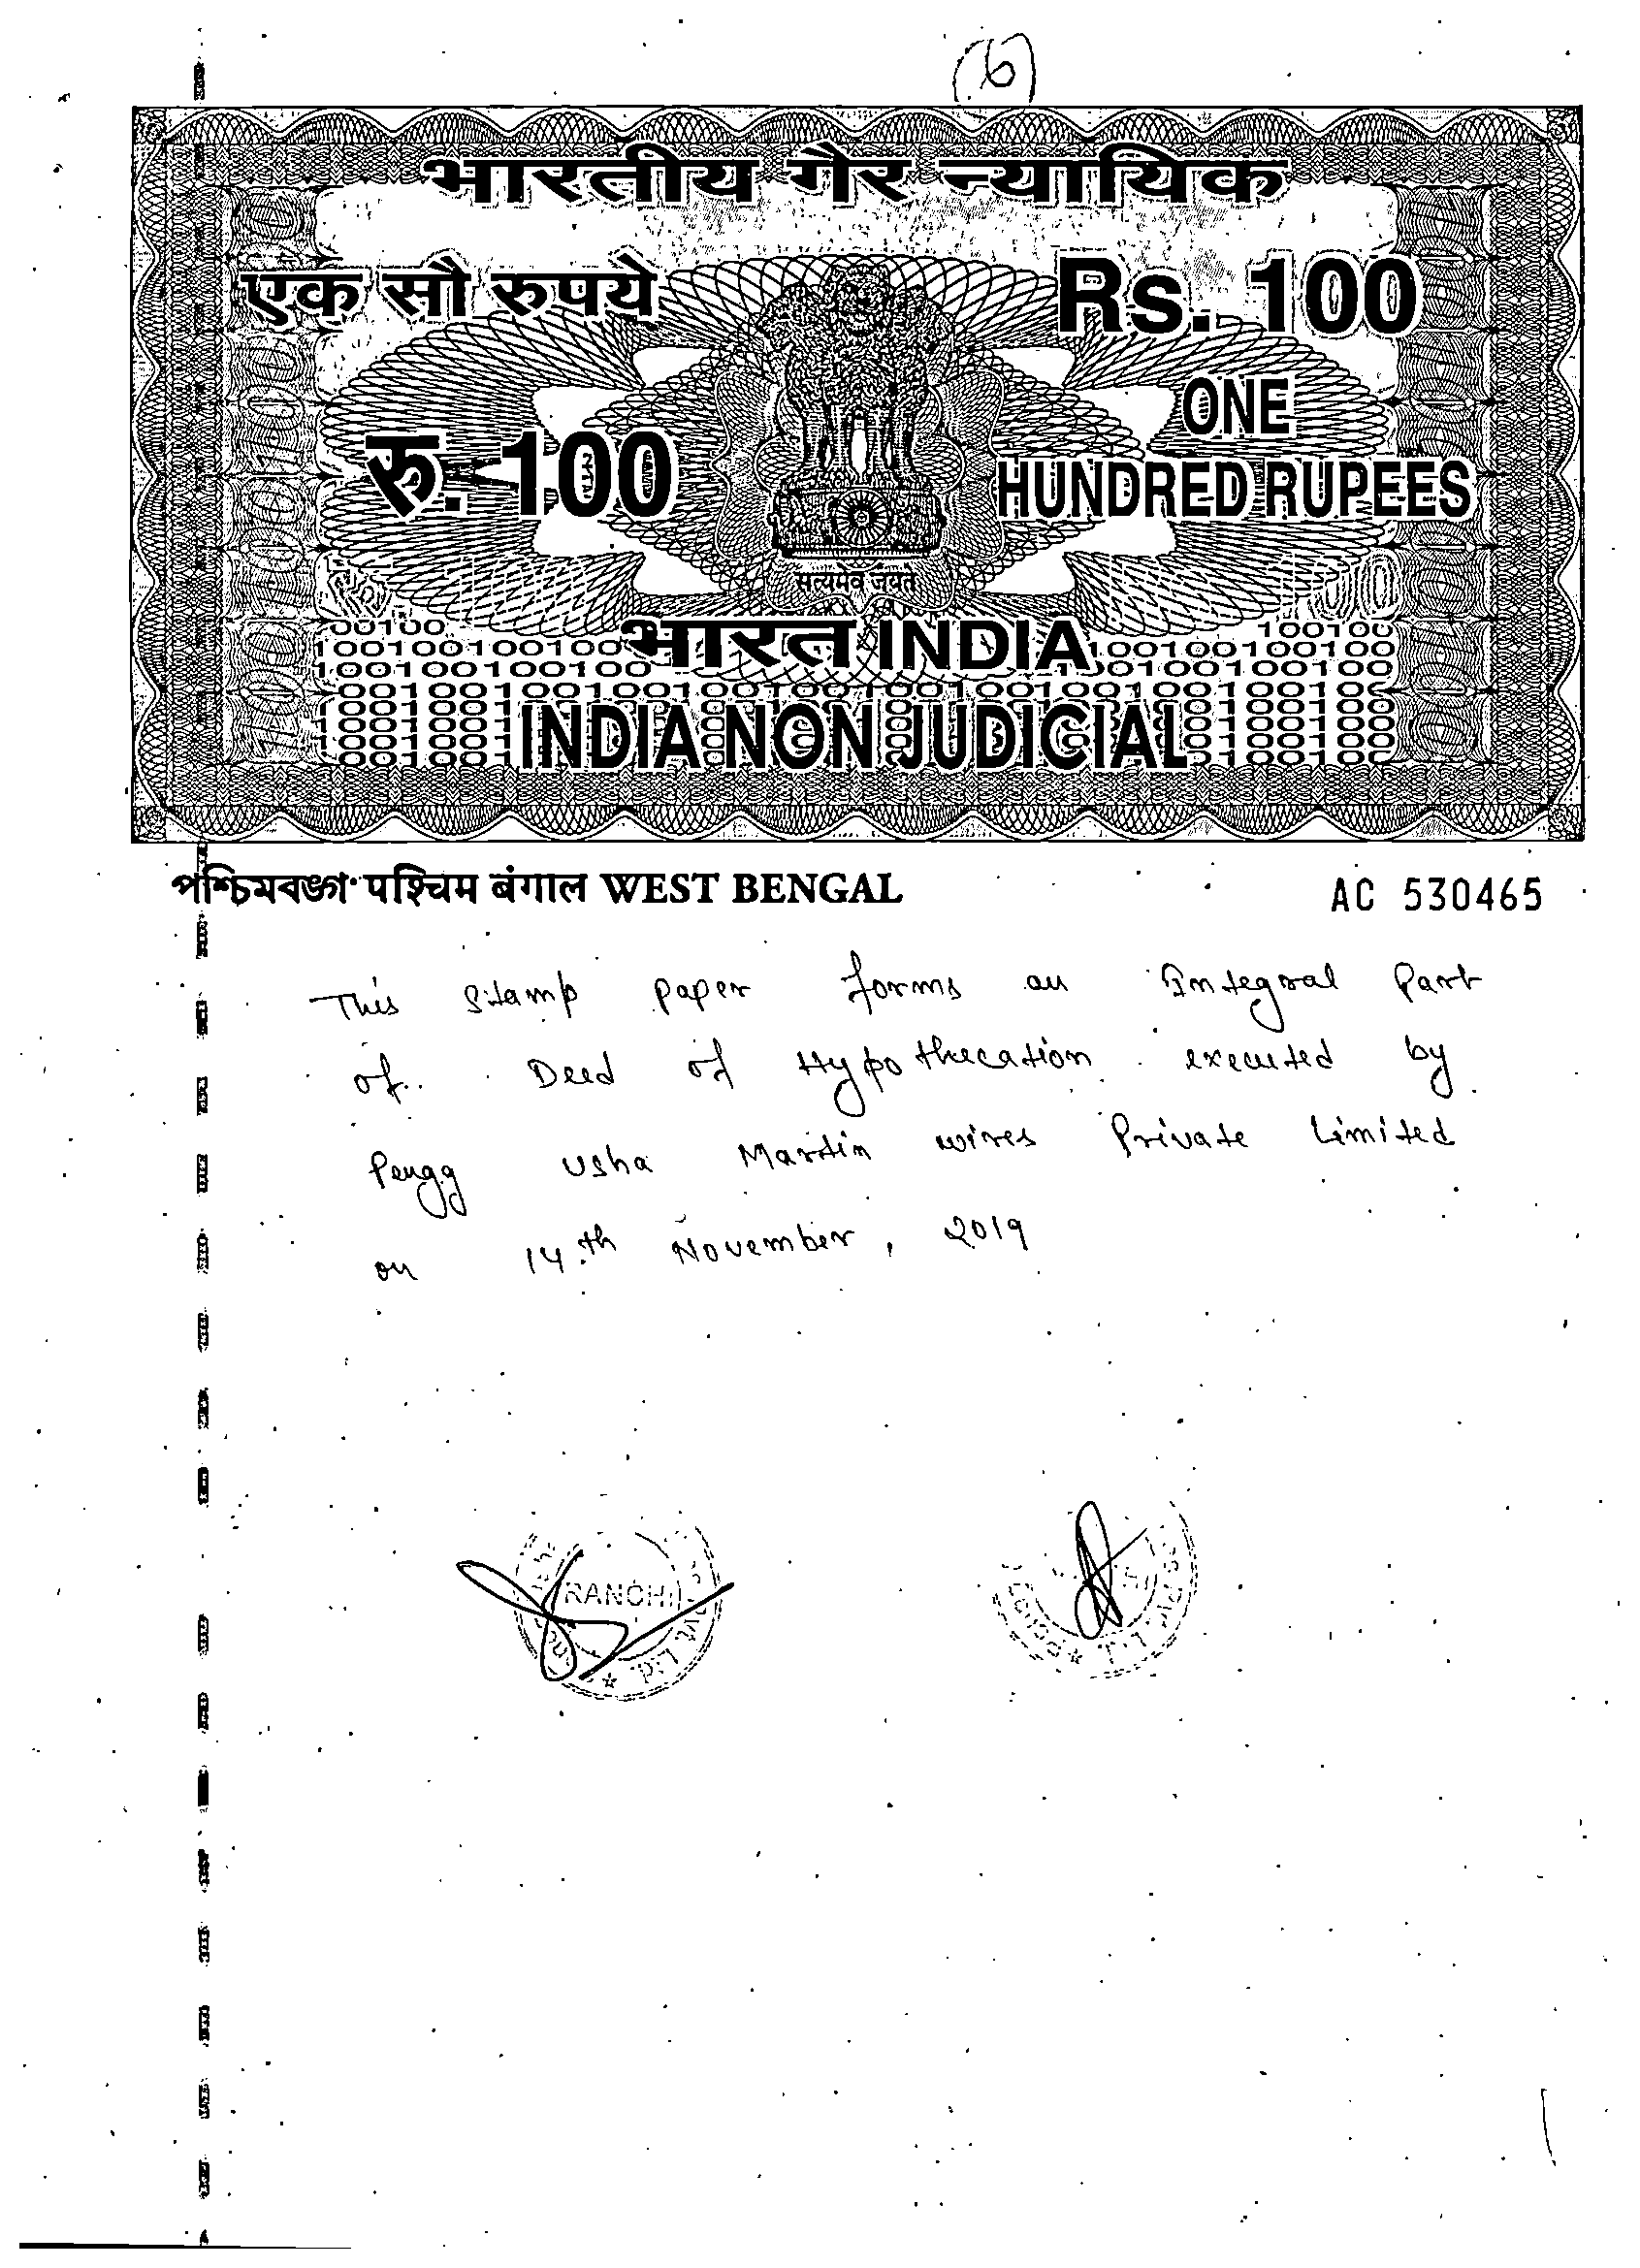 (6)
भारतीय गैर न्यायिक
एक सौ रुपये
Rs. 100
रु. 100
ONE
HUNDRED RUPEES
सत्यमेव जयते
भारत INDIA
INDIA NON JUDICIAL
পশ্চিমবঙ্গ पश्चिम बंगाल WEST BENGAL
AC 530465
This Stamp paper forms an Integral Part
of Deed of Hypothecation executed by
Pengg Usha Martin wires Private Limited
on 14th November, 2019
RANCHI